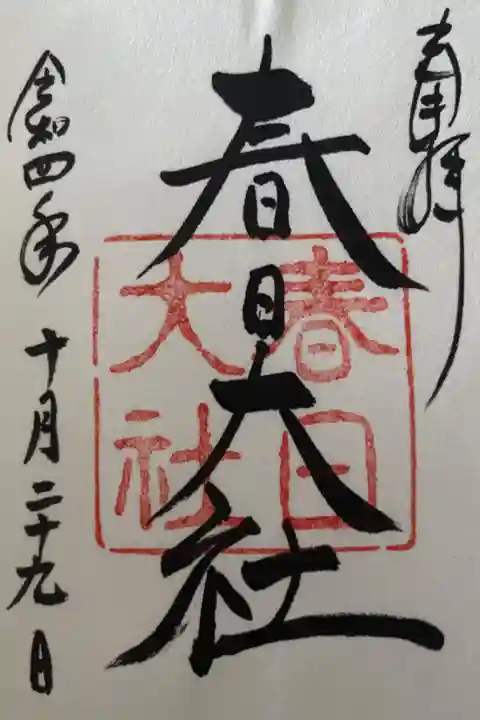 奉拝
春日大社
春日
大社
令和四年 十月二十九日